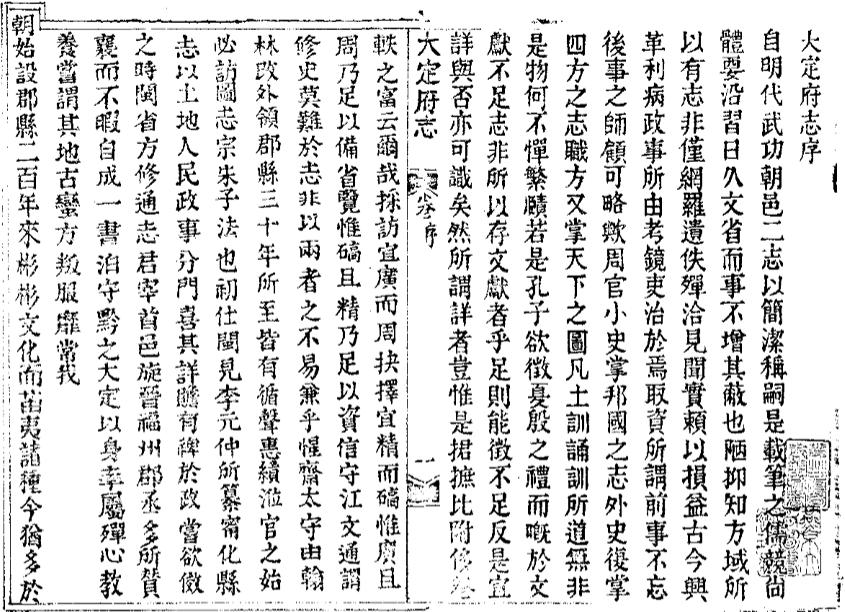 大定府志序
自明代武功朝邑二志以簡潔稱嗣是載筆之儒競尚
體要沿習日久文省而事不增其蔽也陋抑知方域所
以有志非僅網羅遺佚殫洽見聞實賴以損益古今興
革利病政事所由考鏡吏治於焉取資所謂前事不忘
後事之師顧可略歟周官小史掌邦國之志外史復掌
四方之志職方又掌天下之圖凡土訓誦訓所道無非
是物何不憚繁賾若是孔子欲徵夏殷之禮而嘅於文
獻不足志非所以存文獻者乎足則能徵不足反是宜
詳與否亦可識矣然所謂詳者豈惟是捃摭比附侈卷
大定府志 卷序 一
軼之富云爾哉採訪宜廣而周抉擇宜精而確惟廣且
周乃足以備省覽惟確且精乃足以資信守江文通謂
修史莫難於志非以兩者之不易兼乎惺齋太守由翰
林改外領郡縣三十年所至皆有循聲惠績涖官之始
必訪圖志宗朱子法也初仕閩見李元仲所纂甯化縣
志以土地人民政事分門喜其詳贍有裨於政嘗欲倣
之時閩省方修通志君宰首邑旋晉福州郡丞多所贊
襄而不暇自成一書洎守黔之大定以身率屬殫心教
養嘗謂其地古蠻方叛服靡常我
朝始設郡縣二百年來彬彬文化而苗夷諸種今猶多於